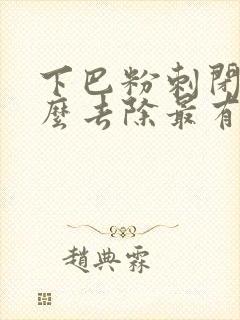 下巴粉刺閉
麼去除最有
趙典霖